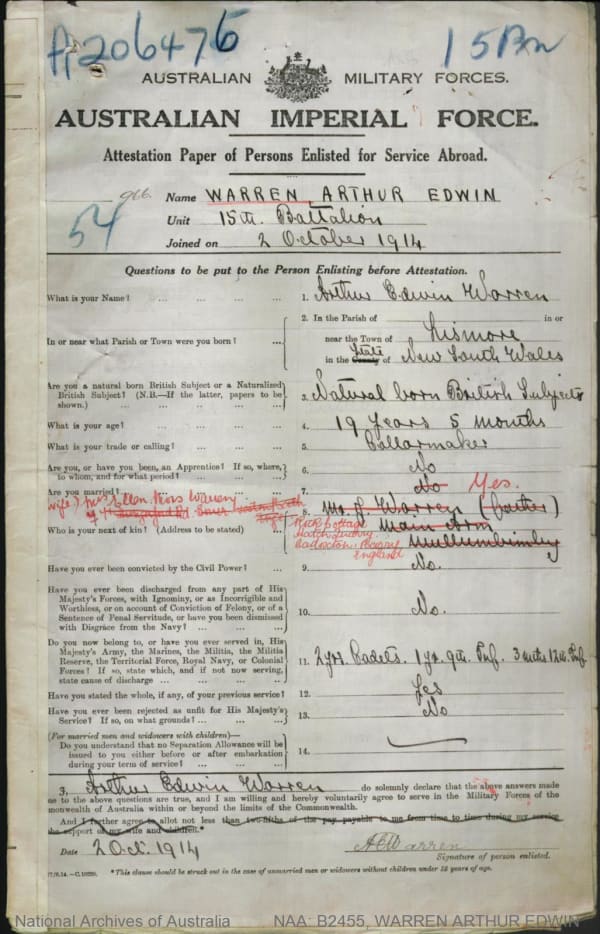 A206476
15Bn
AUSTRALIAN MILITARY FORCES.
AUSTRALIAN IMPERIAL FORCE.
Attestation Paper of Persons Enlisted for Service Abroad.
966
54
Name WARREN ARTHUR EDWIN
Unit 15th Battalion
Joined on 2 October 1914
Questions to be put to the Person Enlisting before Attestation.
What is your Name? ... ... ... ... 1. Arthur Edwin Warren
In or near what Parish or Town were you born? ... 2. In the Parish of in or
near the Town of Lismore
in the County State of New South Wales
Are you a natural born British Subject or a Naturalized
British Subject? (N.B.—If the latter, papers to be
shown.) ... ... ... ... 3. Natural born British Subject
What is your age? ... ... ... ... 4. 19 years 5 months
What is your trade or calling? ... ... ... 5. Collarmaker
Are you, or have you been, an Apprentice? If so, where,
to whom, and for what period? ... ... ... 6. No
Are you married? 7. No Yes.
wife) Mrs Ellen Warren
Who is your next of kin? (Address to be stated) ... 8. Mr J Warren (father)
Main Arm
Mullumbimby
Cottage
England
Have you ever been convicted by the Civil Power? ... 9. No.
Have you ever been discharged from any part of His
Majesty's Forces, with Ignominy, or as Incorrigible and
Worthless, or on account of Conviction of Felony, or of a
Sentence of Penal Servitude, or have you been dismissed
with Disgrace from the Navy? ... ... ... 10. No.
Do you now belong to, or have you ever served in, His
Majesty's Army, the Marines, the Militia, the Militia
Reserve, the Territorial Force, Royal Navy, or Colonial
Forces? If so, state which, and if not now serving,
state cause of discharge ... ... ... ... 11. 2 yrs. Cadets. 1 yr. 9th Inf. 3 mths 12th Inf.
Have you stated the whole, if any, of your previous service? 12. Yes
Have you ever been rejected as unfit for His Majesty's
Service? If so, on what grounds? ... ... ... 13. No
(For married men and widowers with children)—
Do you understand that no Separation Allowance will be
issued to you either before or after embarkation
during your term of service? ... ... ... 14.
I, Arthur Edwin Warren do solemnly declare that the above answers made
by me to the above questions are true, and I am willing and hereby voluntarily agree to serve in the Military Forces of the
Commonwealth of Australia within or beyond the limits of the Commonwealth.
And I further agree to allot not less than two-fifths of the pay payable to me from time to time during my service
for the support of my wife and children.*
Date 2 Oct. 1914 AEWarren
Signature of person enlisted.
*This clause should be struck out in the case of unmarried men or widowers without children under 18 years of age.
National Archives of Australia NAA: B2455, WARREN ARTHUR EDWIN